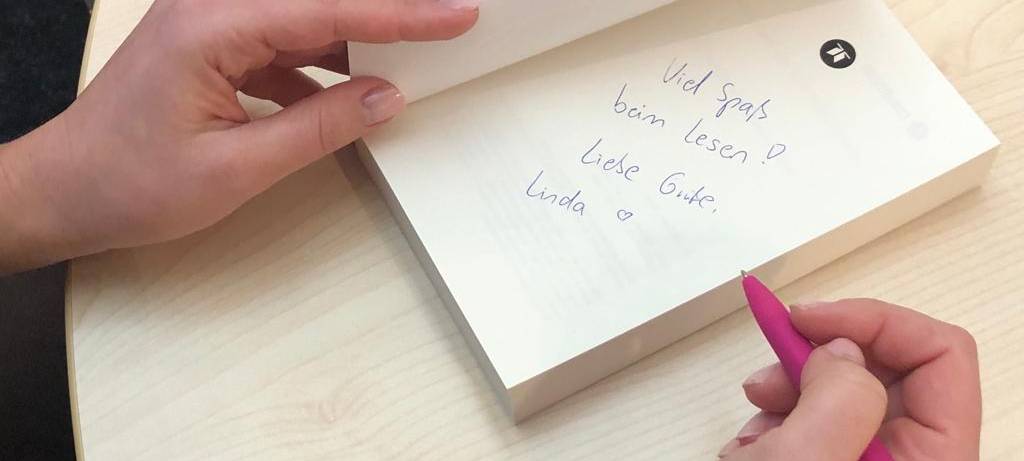 Viel Spaß
beim Lesen!
Liebe Grüße,
Linda ♡